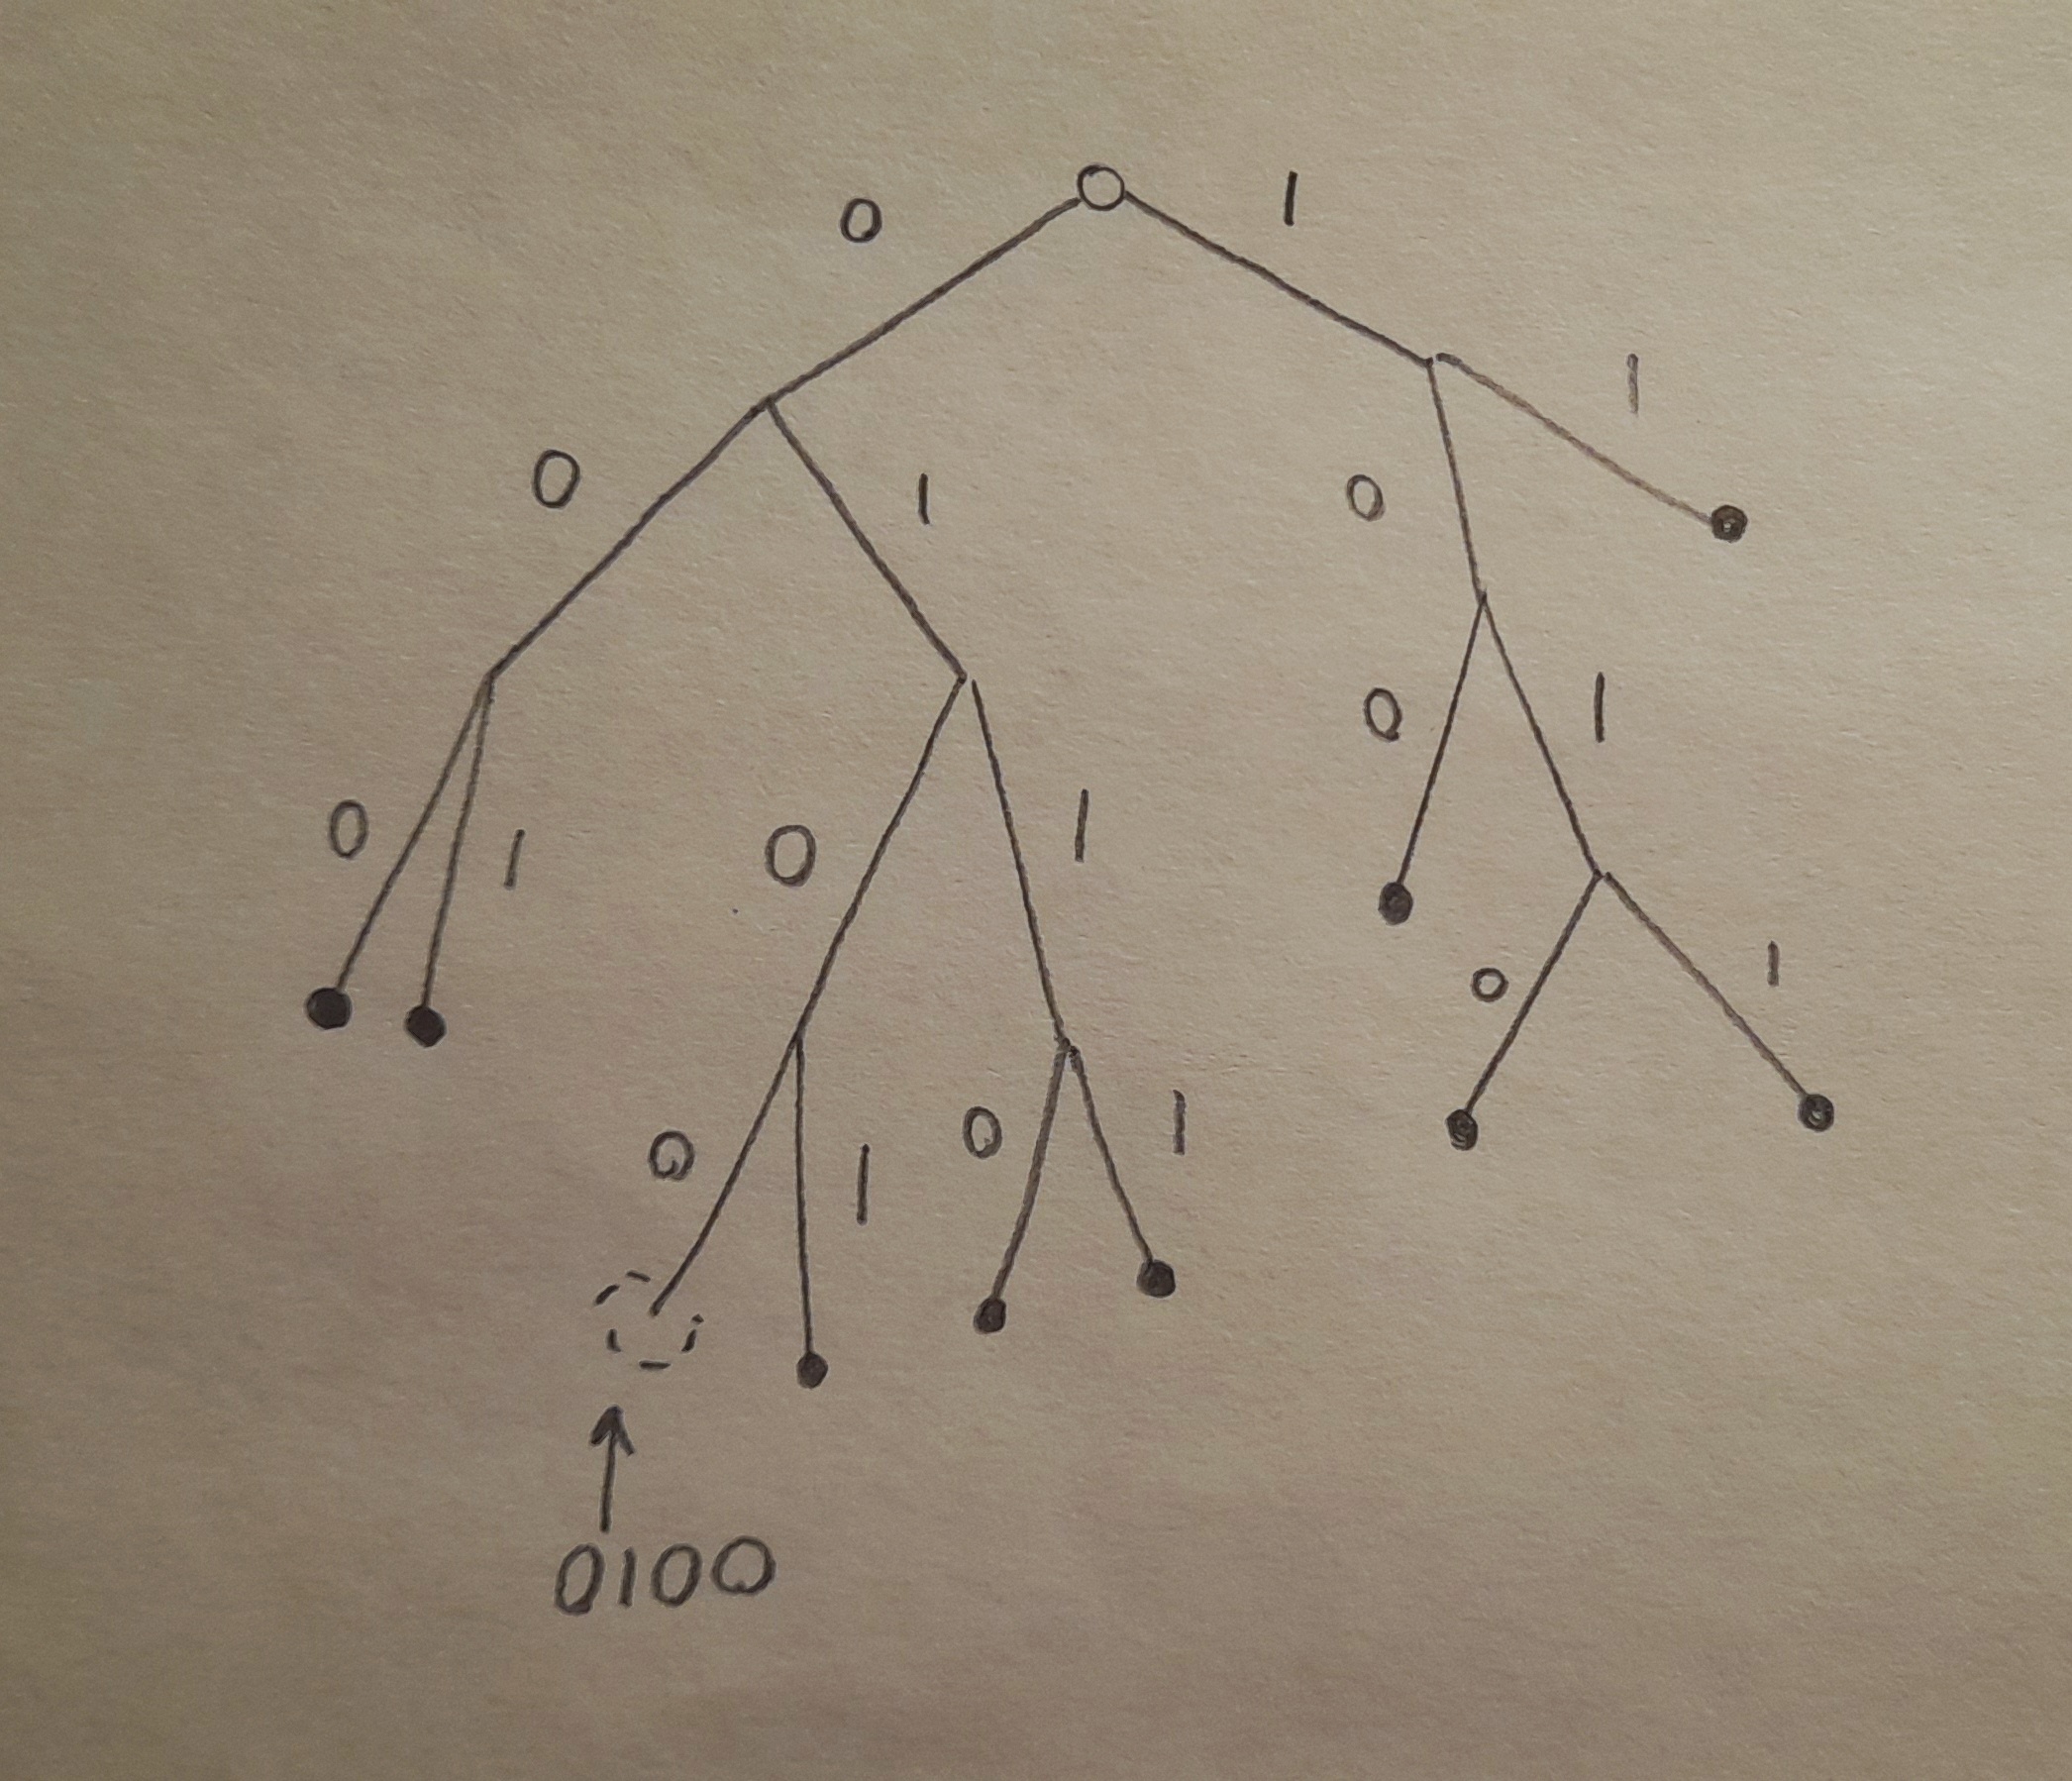 0
1
1
0
1
0
0
1
0
1
0
1
0
1
0
1
0
1
0100